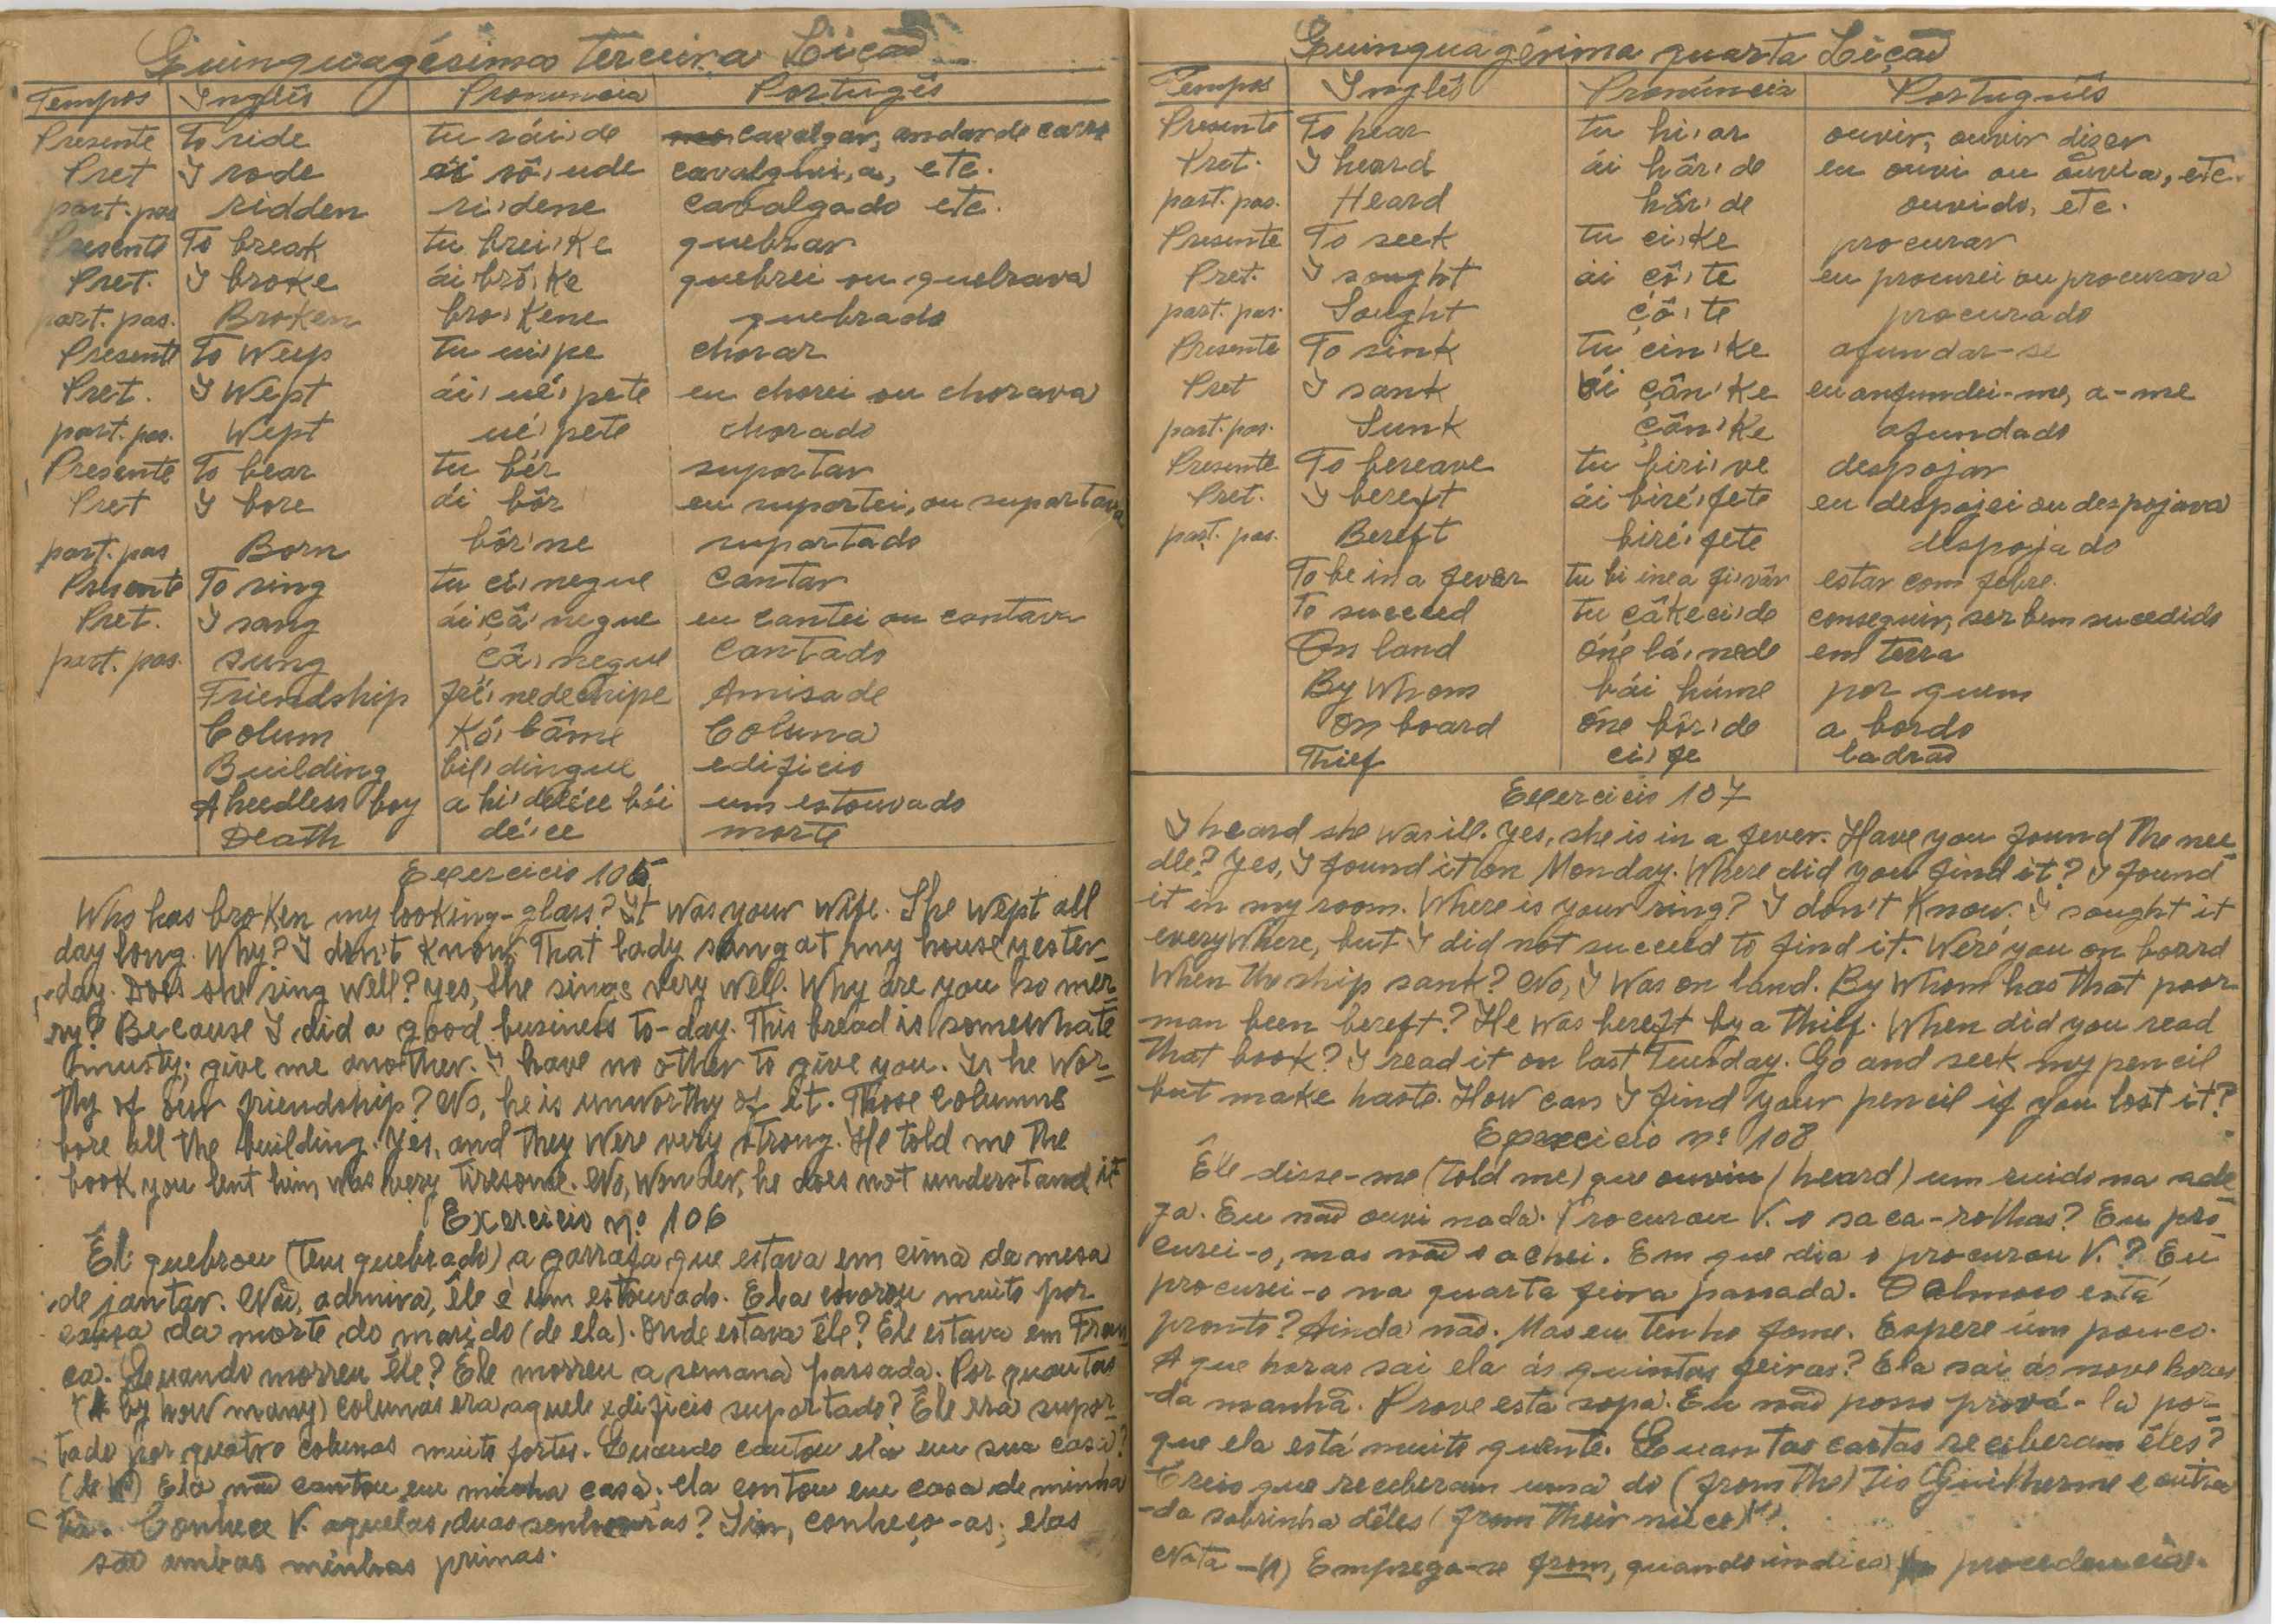 Quinquagésima terceira Lição
Tempos Inglês Pronuncia Portugês
Presente To ride tu rái, de cavalgar, andar de carro
Pret I rode ái rô, ude cavalguei, a, etc.
part. pas ridden ri, dene cavalgado etc.
Presente To break tu brei, Ke quebrar
Pret. I broke ái brô, Ke quebrei ou quebrava
part. pas. Broken bro, Kene quebrado
Presente To Weep tu ui, pe chorar
Pret. I Wept ái, ué, pete eu chorei ou chorava
part. pas. Wept ué, pete chorado
Presente To bear tu bér suportar
Pret I bore ái bôr eu suportei, ou suportava
part. pas Born bôr, ne suportado
Presente To sing tu ci, negue cantar
Pret. I sang ái çâ, negue eu cantei ou cantava
part. pas. sung çâ, negue cantado
Friendship fré, nedechipe Amisade
Colum Kó, lâme Coluna
Building bil, dingue edificio
A heedless boy a hi, deléce bói um estouvado
Death dé, ce morte
Exercicio 105
Who has broken my looking-glass? It was your wife. She wept all
day long. Why? I don't know. That lady sang at my house yester-
day. Does she sing well? yes, she sings very well. Why are you so mer-
ry? Because I did a good business to-day. This bread is somewhate
musty; give me another. I have no other to give you. Is he wor-
thy of our friendship? No, he is unworthy of it. Those columns
bore all the building. Yes, and they were very strong. He told me the
book you lent him was very tiresome. No, wonder, he does not understand it
Exercicio nº 106
Êle quebrou (tem quebrado) a garrafa que estava em cima da mesa
de jantar. Não, admira, êle é um estouvado. Ela chorou muito por
causa da morte do marido (de ela). Onde estava êle? Êle estava em Fran-
ça. Quando morreu êle? Êle morreu a semana passada. Por quantas
(by how many) colunas era aquele edificio suportado? Êle era supor-
tado por quatro colunas muito fortes. Quando cantou ela em sua casa?
(de V.) Ela não cantou em minha casa; ela contou em casa de minha
tia. Conhece V. aquelas duas senhoras? Sim, conheço-as; elas
são ambas minhas primas.
Quinquagésima quarta Lição
Tempos Inglês Pronúncia Português
Presente To hear tu hi, ar ouvir, ouvir dizer
Pret. I heard ái hâr, de eu ouvi ou ouvia, etc.
part. pas. Heard hâr, de ouvido, etc.
Presente To seek tu ci, Ke procurar
Pret. I sought ái çô, te eu procurei ou procurava
part. pas. Sought çô, te procurado
Presente To sink tu cin, Ke afundar-se
Pret I sank ái çân, Ke eu anfundei-me, a-me
part. pas. Sunk çân, Ke afundado
Presente To bereave tu biri, ve despojar
Pret. I bereft ái biré, fete eu despojei ou despojava
part. pas. Bereft biré, fete despojado
To be in a fever tu bi ine a fi, vâr estar com febre.
To succeed tu çâkeci, de conseguir, ser bem sucedido
On land óne lá, nede em terra
By Whom bái húme por quem
On board óne bôr, de a bordo
Thief ci, fe ladrão
Exercicio 107
I heard she was ill. Yes, she is in a fever. Have you found the nee-
dle? Yes, I found it on Monday. Where did you find it? I found
it in my room. Where is your ring? I don't Know. I sought it
everywhere, but I did not succeed to find it. Were you on board
When the ship sank? No, I was on land. By Whom has that poor
man been bereft? He was bereft by a thief. When did you read
that book? I read it on last Tuesday. Go and seek my pencil
but make haste. How can I find your pencil if you lost it?
Exercicio nº 108
Êle disse-me (told me) que ouviu (heard) um ruido na ade-
ga. Eu não ouvi nada. Procurou V. o saca-rolhas? Eu pro
curei-o, mas não o achei. Em que dia o procurou V.? Eu
procurei-o na quarta feira passada. O almoso está
pronto? Ainda não. Mas eu tenho fome. Espere um pouco.
A que horas sai ela ás quintas feiras? Ela sai ás nove horas
-da manhã. Prove esta sopa. Eu não posso prová-la por-
que ela está muito quente. Quantas cartas receberam êles?
Creio que receberam uma do (from the) tio Guilherme e outra
-da sobrinha dêles (from their niece)(1).
Nota -(1) Emprega-se from, quando indica procedencia.